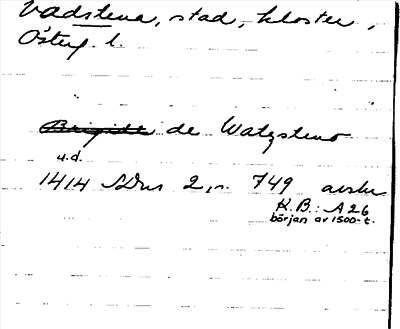 Vadstena, stad, kloster,
Österg. l.
Brigide de Watzsteno
u.d.
1414 SDns 2, s. 749 avskr
K.B.: A 26
början av 1500-t.